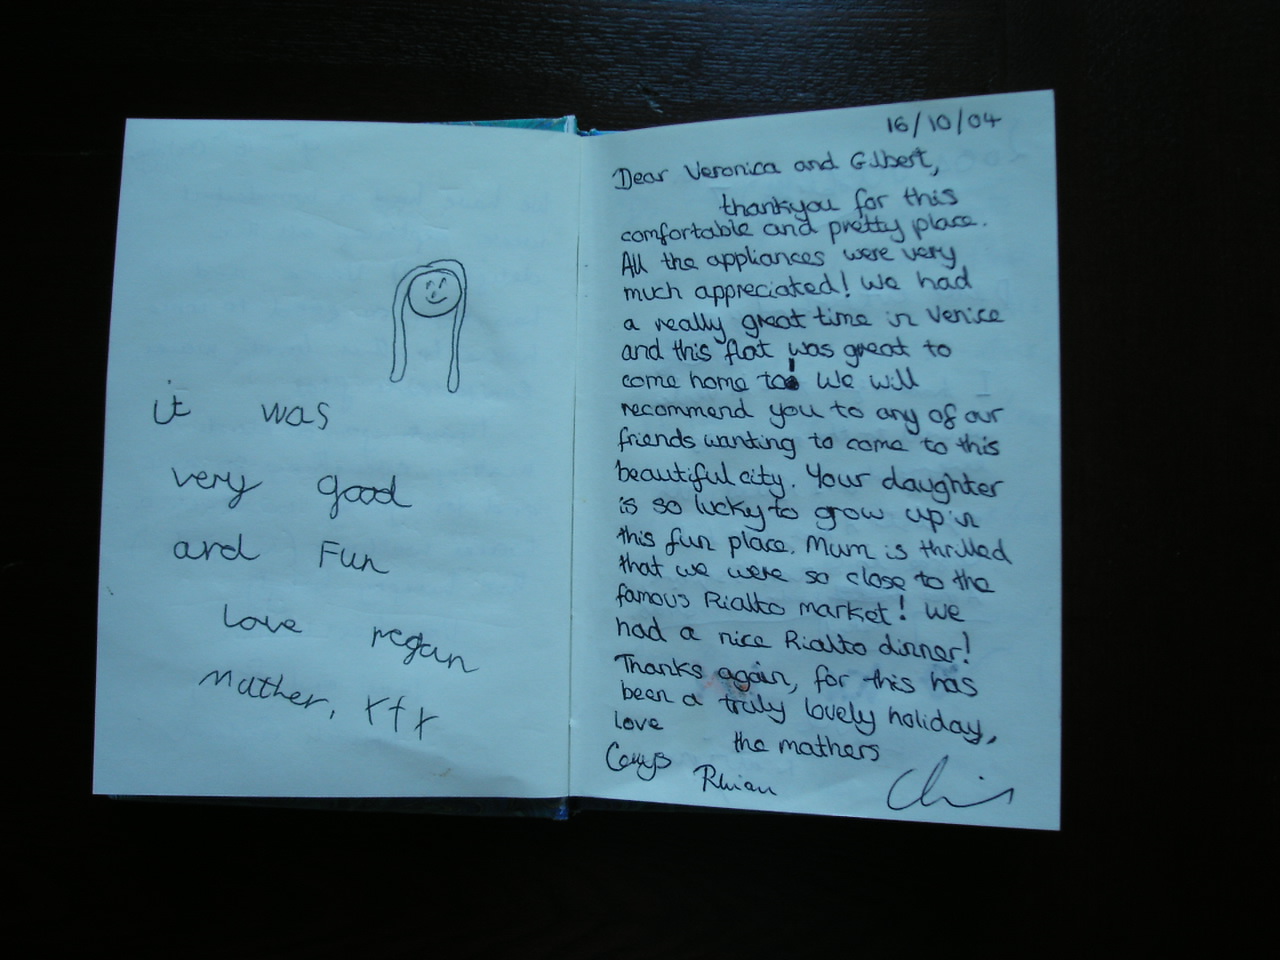 it was
very good
and Fun
love regan
mather, xxx
16/10/04
Dear Veronica and Gilbert,
thankyou for this
comfortable and pretty place.
All the appliances were very
much appreciated! We had
a really great time in Venice
and this flat was great to
come home to! We will
recommend you to any of our
friends wanting to come to this
beautiful city. Your daughter
is so lucky to grow up in
this fun place. Mum is thrilled
that we were so close to the
famous Rialto market! We
had a nice Rialto dinner!
Thanks again, for this has
been a truly lovely holiday,
love the mathers
Carys Rhian Chris